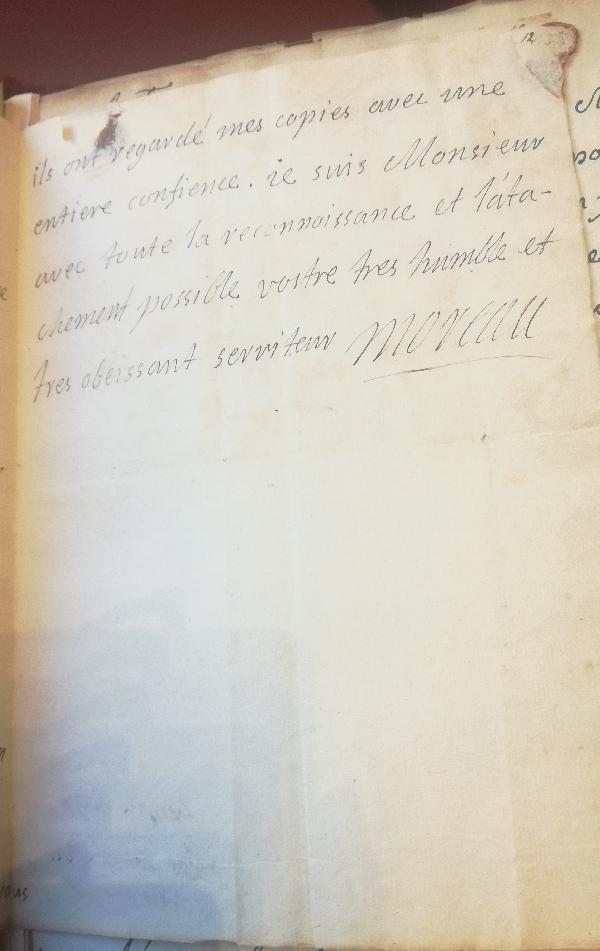 12
ils ont regardé mes copies avec une
entiere confience. ie suis Monsieur
avec toute la reconnoissance et láta-
chement possible vostre tres humble et
tres obeissant serviteur moreau